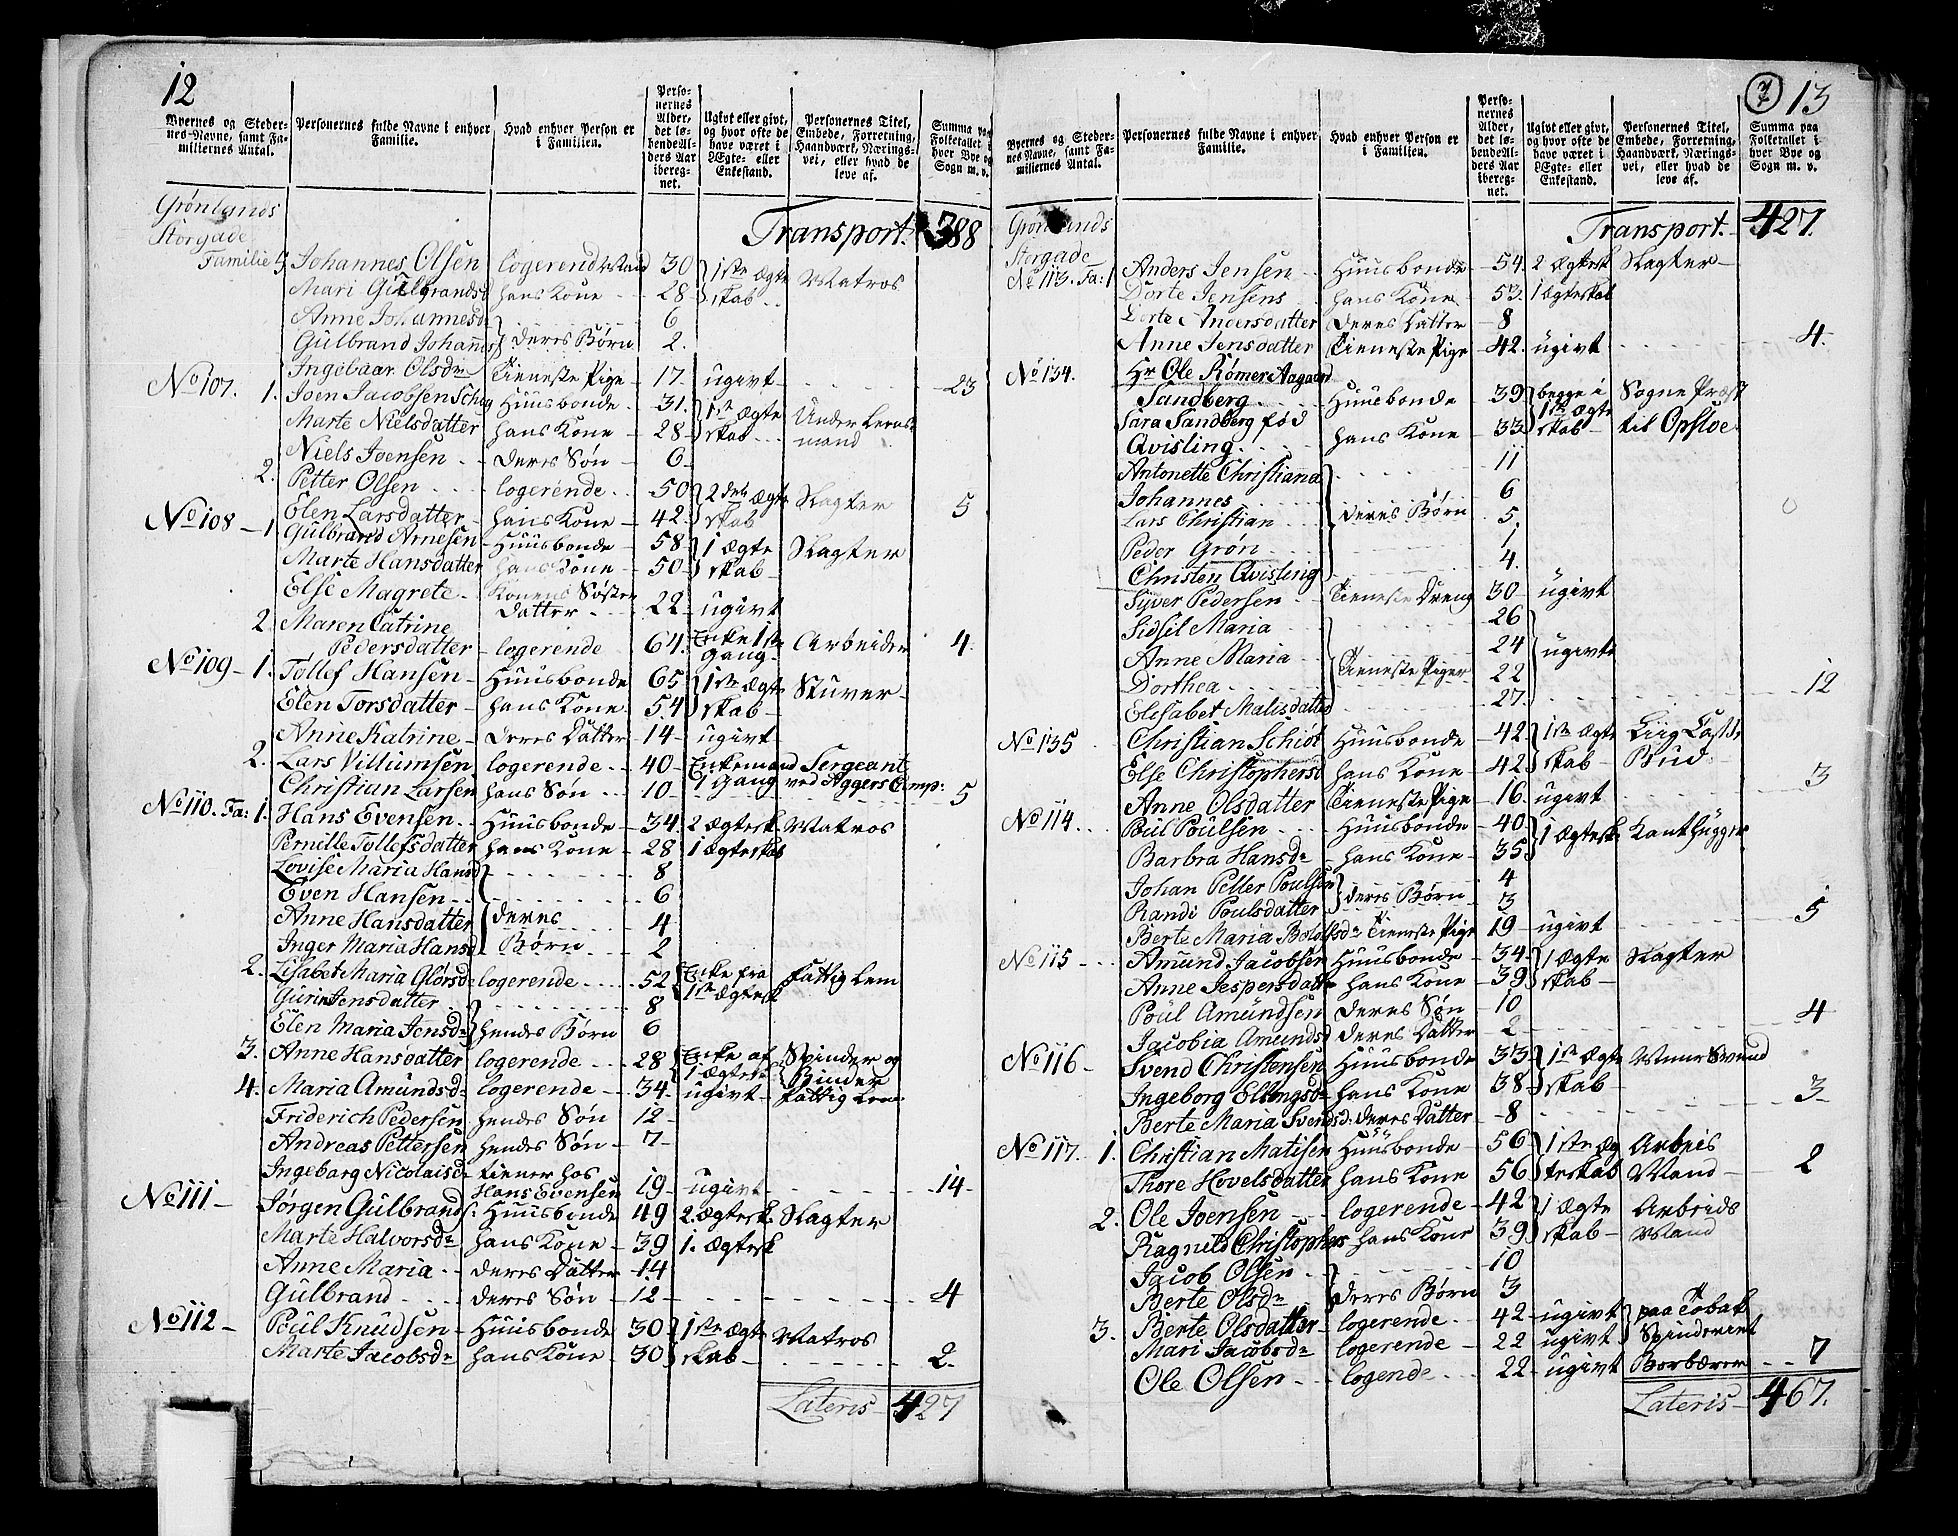 12
Byernes og Steder-
nes-Navne, samt Fa-
miliernes Antal.
Personernes fulde Navne i enhver
Familie.
Hvad enhver Person er
i Familien.
Perso-
nernes
Alder,
det lø-
bende Al-
ders Aar
ibereg-
net.
Ugivt eller givt,
og hvor ofte de
have været i
Ægte- eller
Enkestand.
Personernes Titel,
Embede, Forretning,
Haandværk, Nærings-
vei, eller hvad de
leve af.
Summa paa
Folketallet i
hver Bye og
Sogn m. v.
Grønlands
Storgade
Transport. 388
Familie Johannes Olsen logerend Mand 30 1ste Ægte Matros
Mari Gulbrandsd hans Kone 28 skab
Anne Johannesd 6
Gulbrand Johannes deres Børn 2.
Ingebaar Olsdr Tieneste Pige 17 ugivt 23
No 107. 1. Joen Jacobsen Huusbonde 31. 1ste Ægte Under
Marte Nielsdatter hans Kone 28 skab mand
Niels Joensen deres Søn 6
2. Petter Olsen logerende 50 2den Ægte Slagter
Elen Larsdatter hans Kone 42 skab 5
No 108 1 Gulbrand Arnesen Huusbonde 58 1 Ægte Slagter
Marte Hansdatter hans Kone 50 skab
Else Magrete Konens Søster
Datter 22 ugivt
2. Maren Catrine
Pedersdatter logerende 64. Enke 1ste Gang Arbeider 4.
No 109 1. Tollef Hansen Huusbonde 65 1ste Ægte Stuver
Elen Torsdatter hans Kone 54 skab
Anne Katrine deres Datter 14 ugivt
2. Lars Villumsen logerende 40 Enkemand Sergeant
Christian Larsen hans Søn 10 1 Gang ved Aggers Comp: 5
No 110. Fa: 1. Hans Evensen Huusbonde 34. 2 Ægtesk. Matros
Pernille Tollefsdatter hans Kone 28 1 Ægteskab
Lovise Maria Hansd 8
Even Hansen 6
Anne Hansdatter deres 4
Inger Maria Hansd Børn 2
2. Lisabet Maria Glørsd logerende 52 Enke fra Fattig Lem
1ste Ægtesk
Guri Jensdatter 8
Elen Maria Jensdr hendes Børn 6
3. Anne Hansdatter logerende 28 Enke af Spinder og
1 Ægtesk Binder
4. Maria Amundsdr logerende 34. ugivt fattig Lem
Friderich Pedersen hendes Søn 12
Andreas Pettersen hendes Søn 7
Ingebarg Nicolaisdr tiener hos
Hans Evensen 19 ugivt 14
No 111 Jørgen Gulbrands: Huusbonde 49 2. Ægtesk Slagter
Marte Halvorsdr hans Kone 39 1. Ægtesk
Anne Maria deres Datter 14
Gulbrand deres Søn 12 4
No 112 Poul Knudsen Huusbonde 30 1ste Ægte Matros
Marte Jacobsdr hans Kone 30 skab 2.
Lateris 427
7 13
Byernes og Steder-
nes Navne, samt Fa-
miliernes Antal.
Personernes fulde Navne i enhver
Familie.
Hvad enhver Person er
i Familien.
Perso-
nernes
Alder,
det lø-
bende Al-
ders Aar
ibereg-
net.
Ugivt eller givt,
og hvor ofte de
have været i
Ægte- eller
Enkestand.
Personernes Titel,
Embede, Forretning,
Haandværk, Nærings-
vei, eller hvad de
leve af.
Summa paa
Folketallet i
hver Bye og
Sogn m. v.
Grønlands
Storgade
Transport. 427.
No 113. Fa: 1 Anders Jensen Huusbonde 54. 2 Ægtesk Slagter
Dorte Jensens hans Kone 53. 1 Ægteskab
Dorte Andersdatter deres Datter 8
Anne Jensdatter Tieneste Pige 42. ugivt 4.
No 134. Hr Ole Rømer Aagaard
Sandberg Huusbonde 39 begge i Sogne Præst
Sara Sandberg fød 1ste Ægte
Qvisling hans Kone 33. skab til Opsloe
Antonette Christiana 11
Johannes 6
Lars Christian deres Børn 5.
Peder Grøn 1
Christen Qvisling 4.
Syver Pedersen Tieneste Dreng 30 ugivt
Sidsil Maria 26
Anne Maria 24 ugivte
Dorthea Tieneste Piger 22
Elisabet Malisdatter 27. 12
No 135 Christian Schiøt Huusbonde 42 1ste Ægte
Else Christophersd hans Kone 42 skab Bud
Anne Olsdatter Tieneste Pige 16. ugivt 3
No 114 Poul Poulsen Huusbonde 40 1 Ægtesk Kanthugger
Barbra Hansdr hans Kone 35
Johan Peller Poulsen 4
Randi Poulsdatter deres Børn 3
Berte Maria Tieneste Pige 19 ugivt 5
No 115 Amund Jacobsen Huusbonde 34 1 Ægte Slagter
Anne Jespersdatter hans Kone 39 skab
Poul Amundsen deres Søn 10
Jacobia Amundsd deres Datter 2 4
No 116 Svend Christensen Huusbonde 33 1ste Ægte Muur Svend
Ingeborg Ellingsdr hans Kone 38 skab
Berte Maria Svendsd: deres Datter 8 3
No 117. 1. Christian Matisen Huusbonde 56 1ste Æg Arbeis
Thore Hovelsdatter hans Kone 56 teskab Mand 2
2. Ole Joensen logerende 42 1 Ægte Arbeids
Ragnild Christophers hans Kone 39 skab Mand
Jacob Olsen 10
Berte Olsdr deres Børn 3
3. Berte Olsdatter logerende 42 ugivt paa Tobak
Mari Jacobsdr logerende 22 ugivt Spinderiet
Ole Olsen logende 22 ugivt Borbærer 7
Lateris 467.